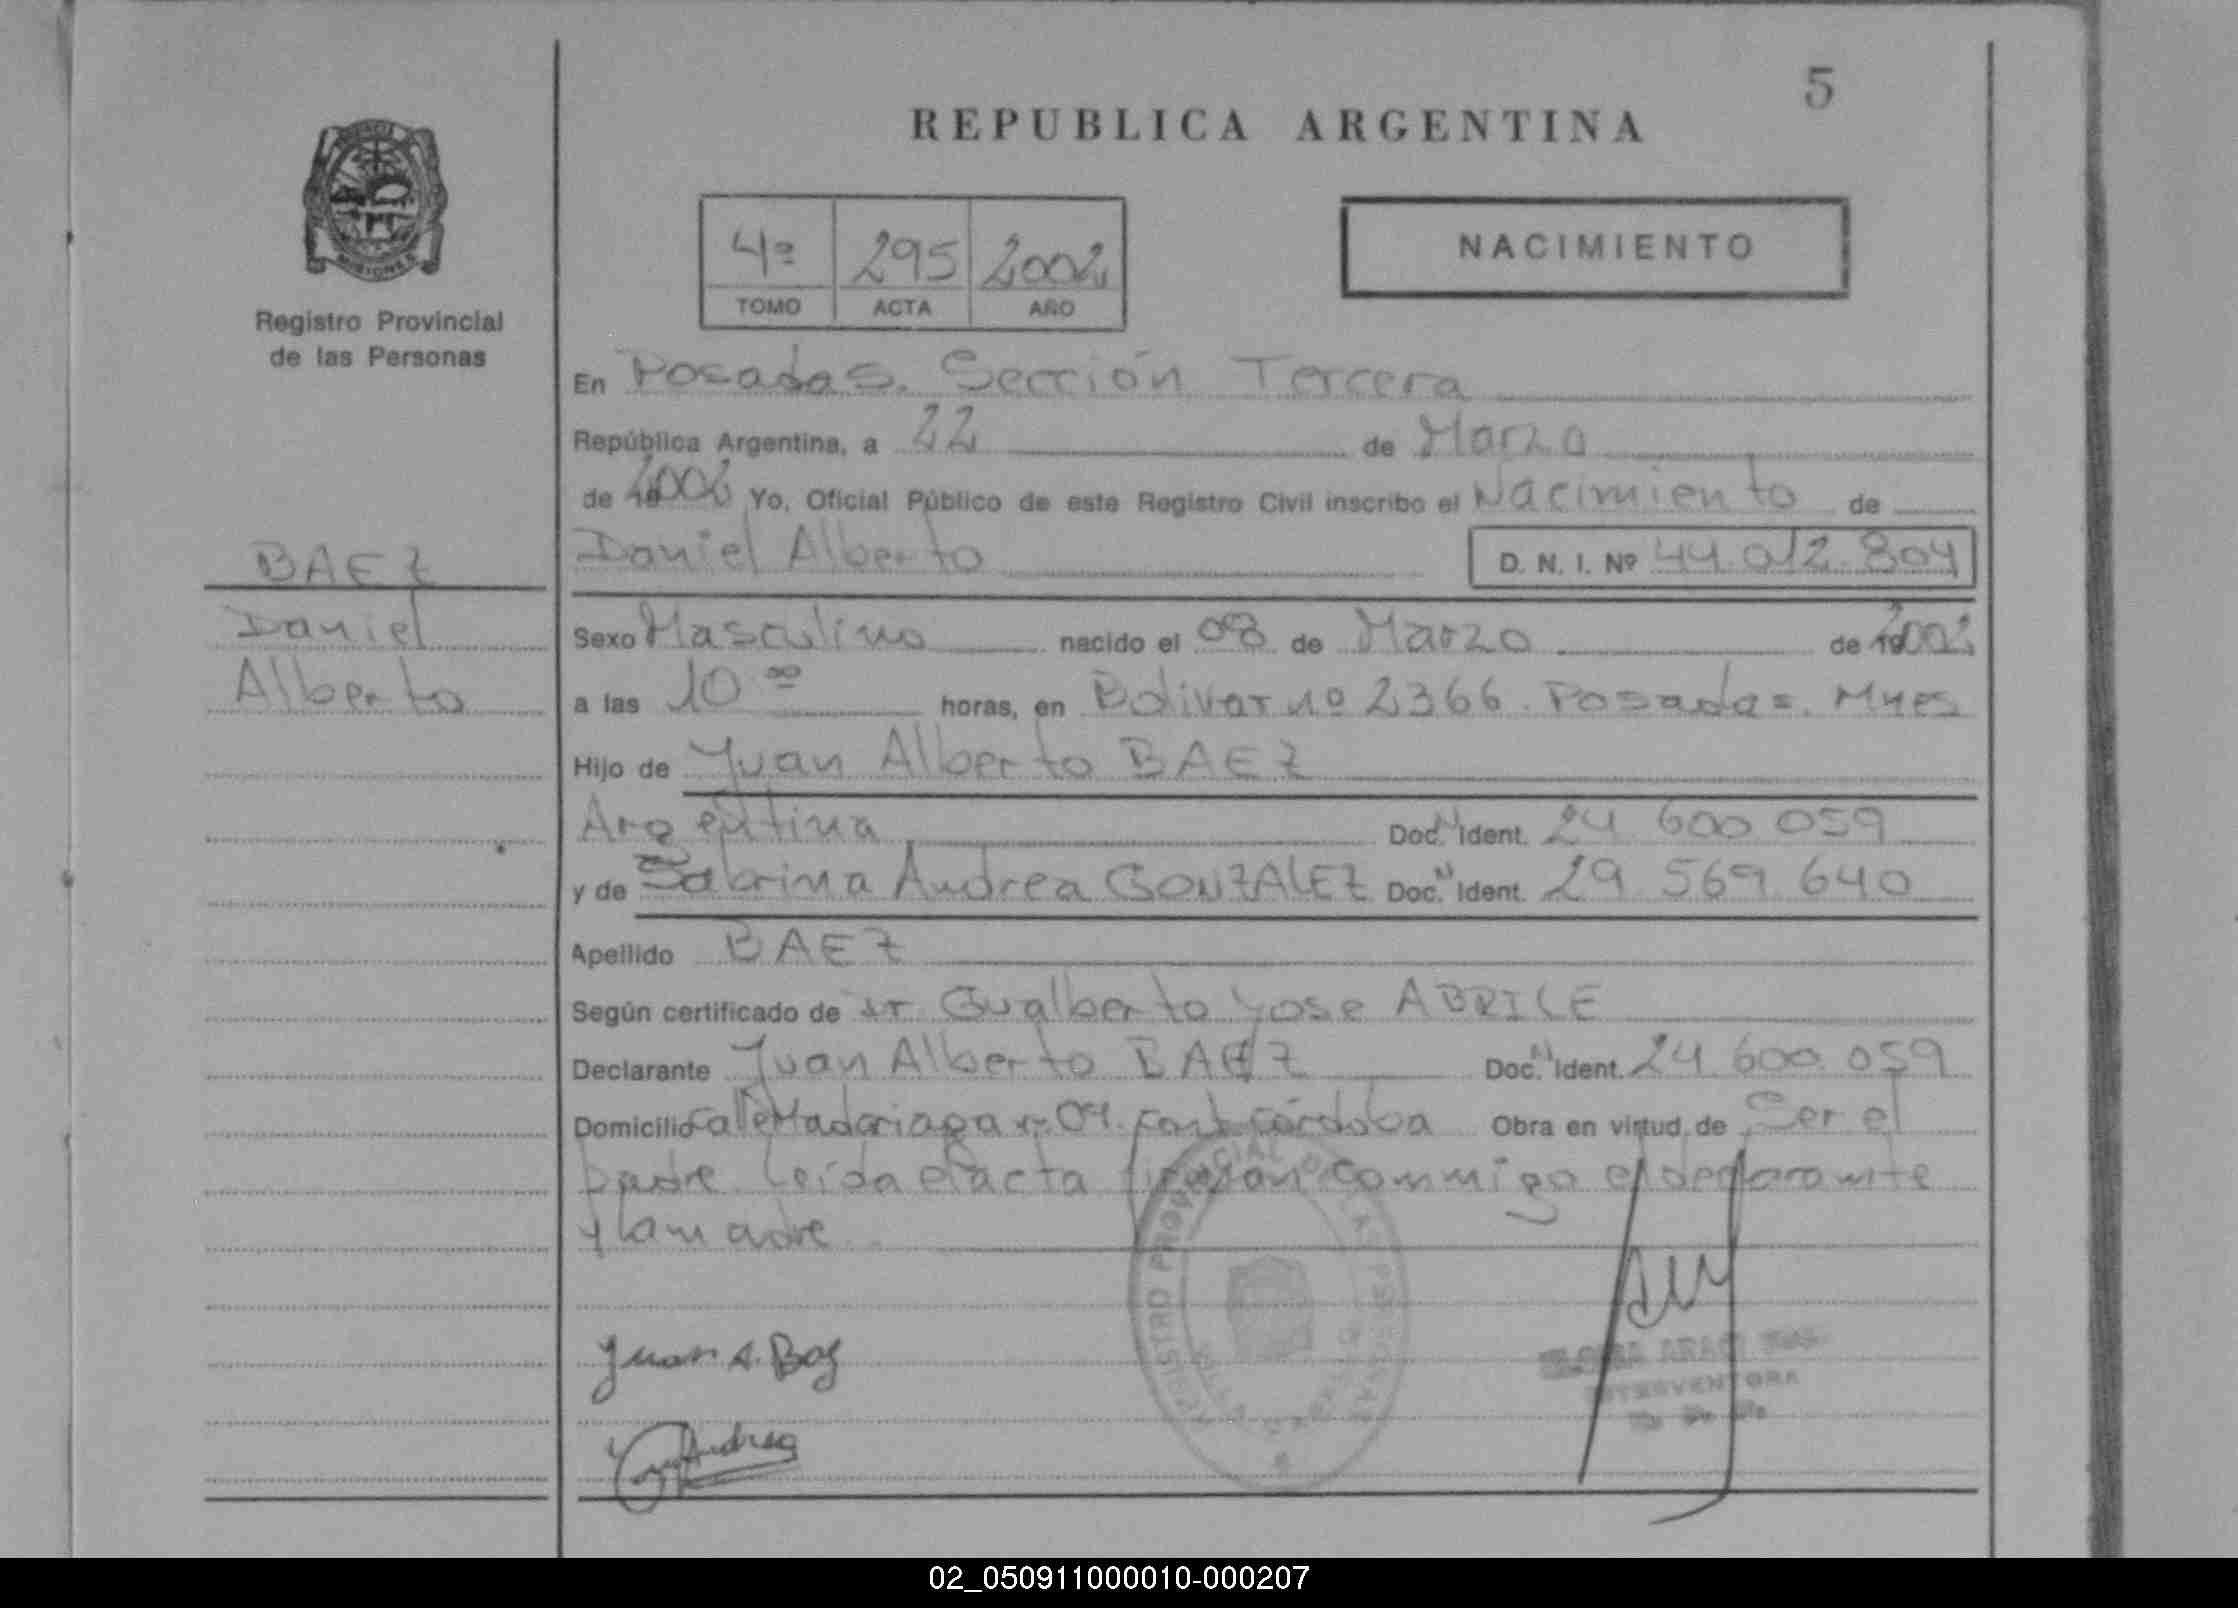 5
REPUBLICA ARGENTINA
MISIONES
Registro Provincial
de las Personas
4º 295 2002
TOMO ACTA AÑO
NACIMIENTO
En Posadas. Sección Tercera
República Argentina, a 22 de Marzo
de 2002 Yo, Oficial Público de este Registro Civil inscribo el Nacimiento de
BAEZ
Daniel
Alberto
Daniel Alberto D. N. I. Nº 44.012.804
Sexo Masculino nacido el 08 de Marzo de 2002
a las 10 00 horas, en Bolivar nº 2366. Posadas. Mnes
Hijo de Juan Alberto BAEZ
Argentina Doc. N Ident. 24.600.059
y de Sabrina Andrea GONZALEZ Doc. N Ident. 29.569.640
Apellido BAEZ
Según certificado de Dr. Gualberto Jose ABRILE
Declarante Juan Alberto BAEZ Doc. N Ident. 24.600.059
Domicilio Calle Madariaga nº 04. Córdoba Obra en virtud de Ser el
padre. Leida el acta firman conmigo el declarante
y la madre
REGISTRO PROVINCIAL DE LAS PERSONAS
Juan A. Baez
Andrea
INTERVENTORA
02_050911000010-000207